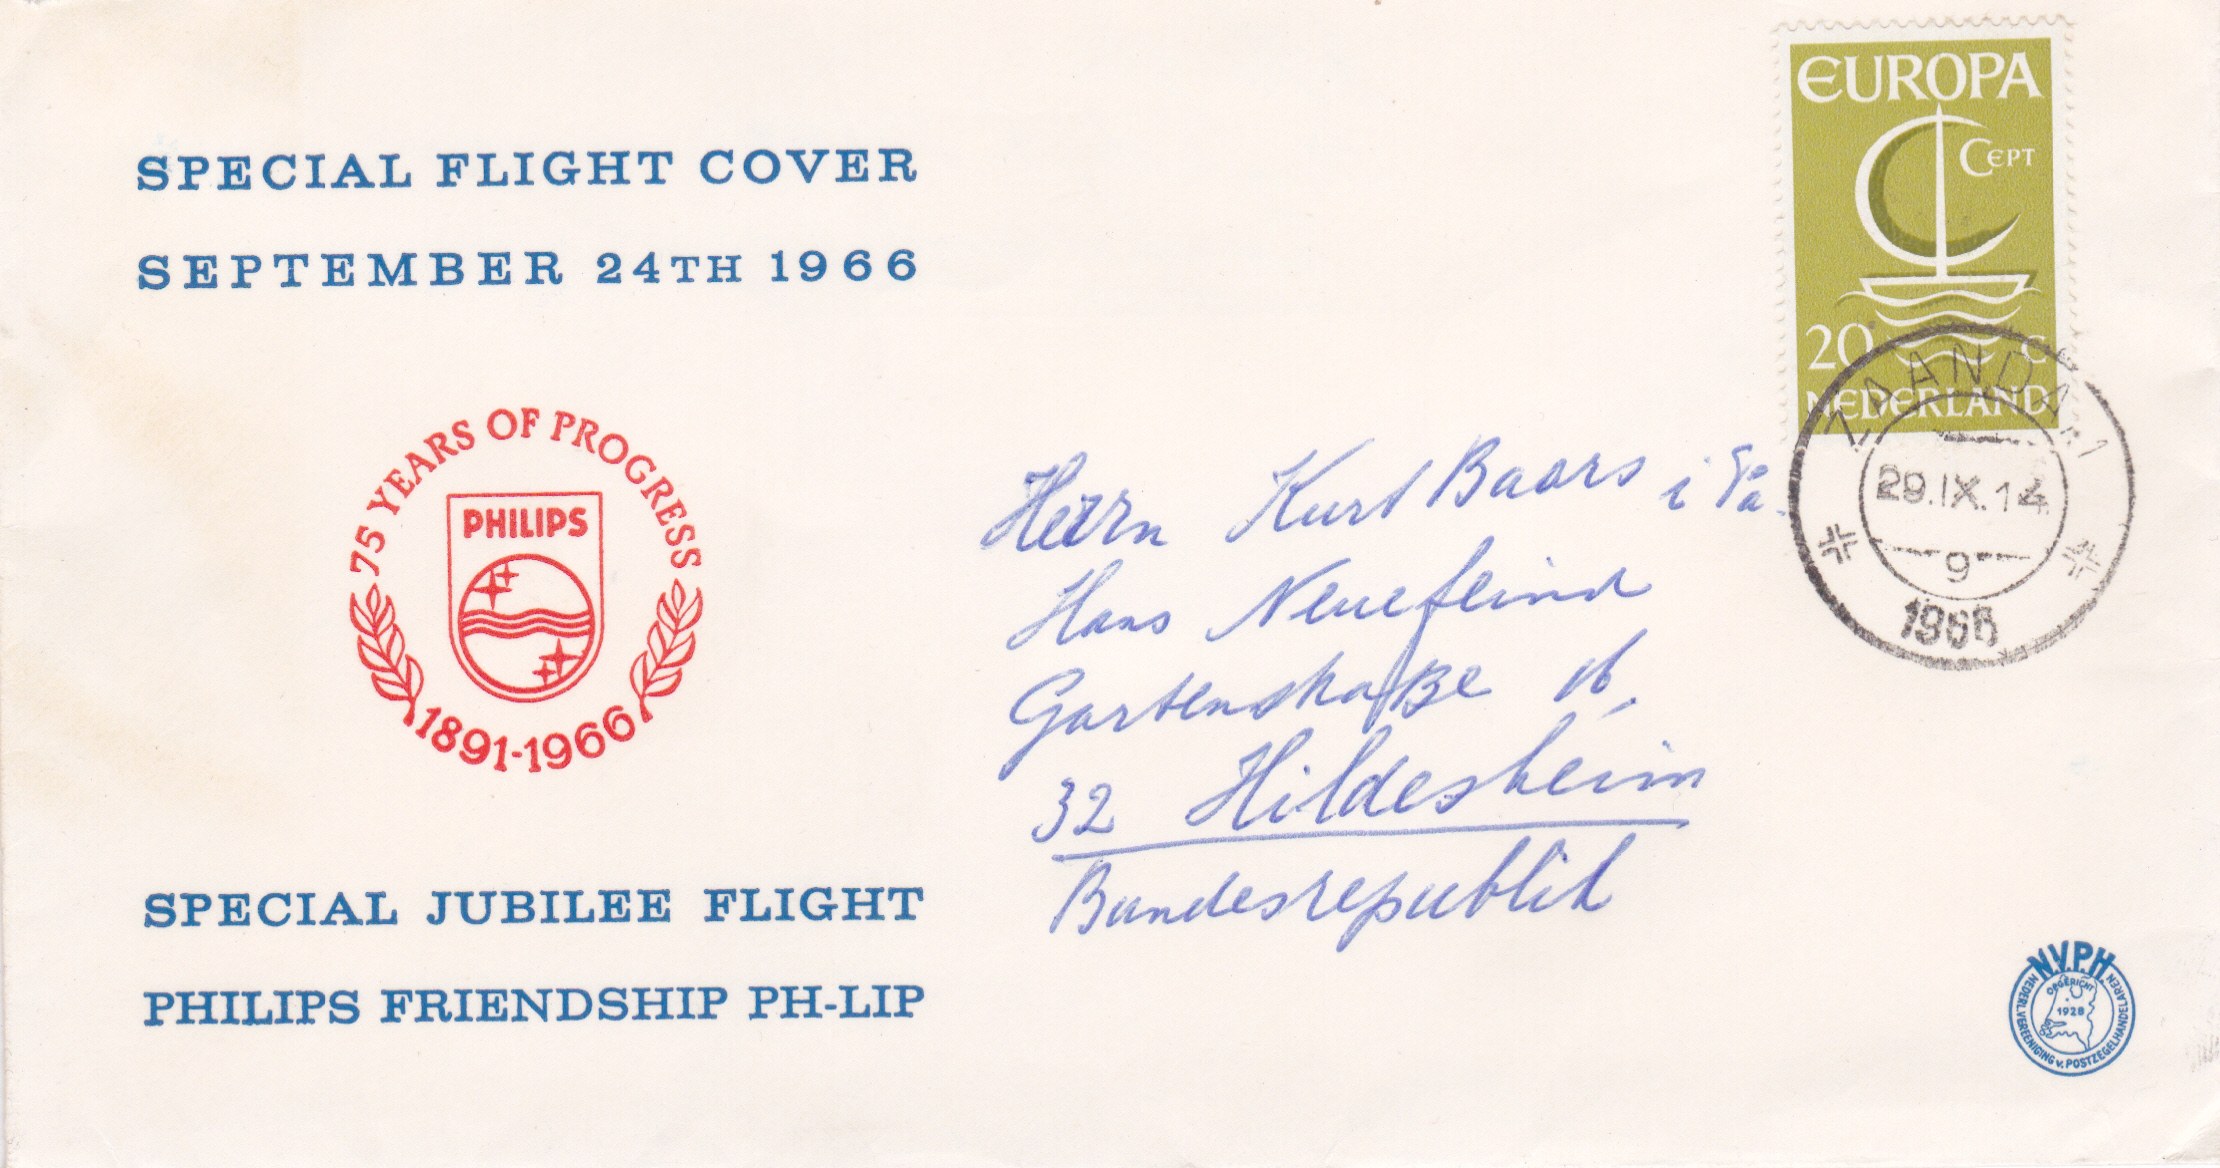 SPECIAL FLIGHT COVER
SEPTEMBER 24TH 1966
75 YEARS OF PROGRESS
PHILIPS
1891-1966
SPECIAL JUBILEE FLIGHT
PHILIPS FRIENDSHIP PH-LIP
EUROPA
CEPT
20 C
NEDERLAND
ZAANDAM
29.IX.14
9
1966
Herrn Kurt Baars i Fa.
Hans Neuefeind
Gartenstraße
32 Hildesheim
Bundesrepublik
N.V.P.H.
OPGERICHT
1928
NEDERL. VEREENIGING v. POSTZEGELHANDELAREN